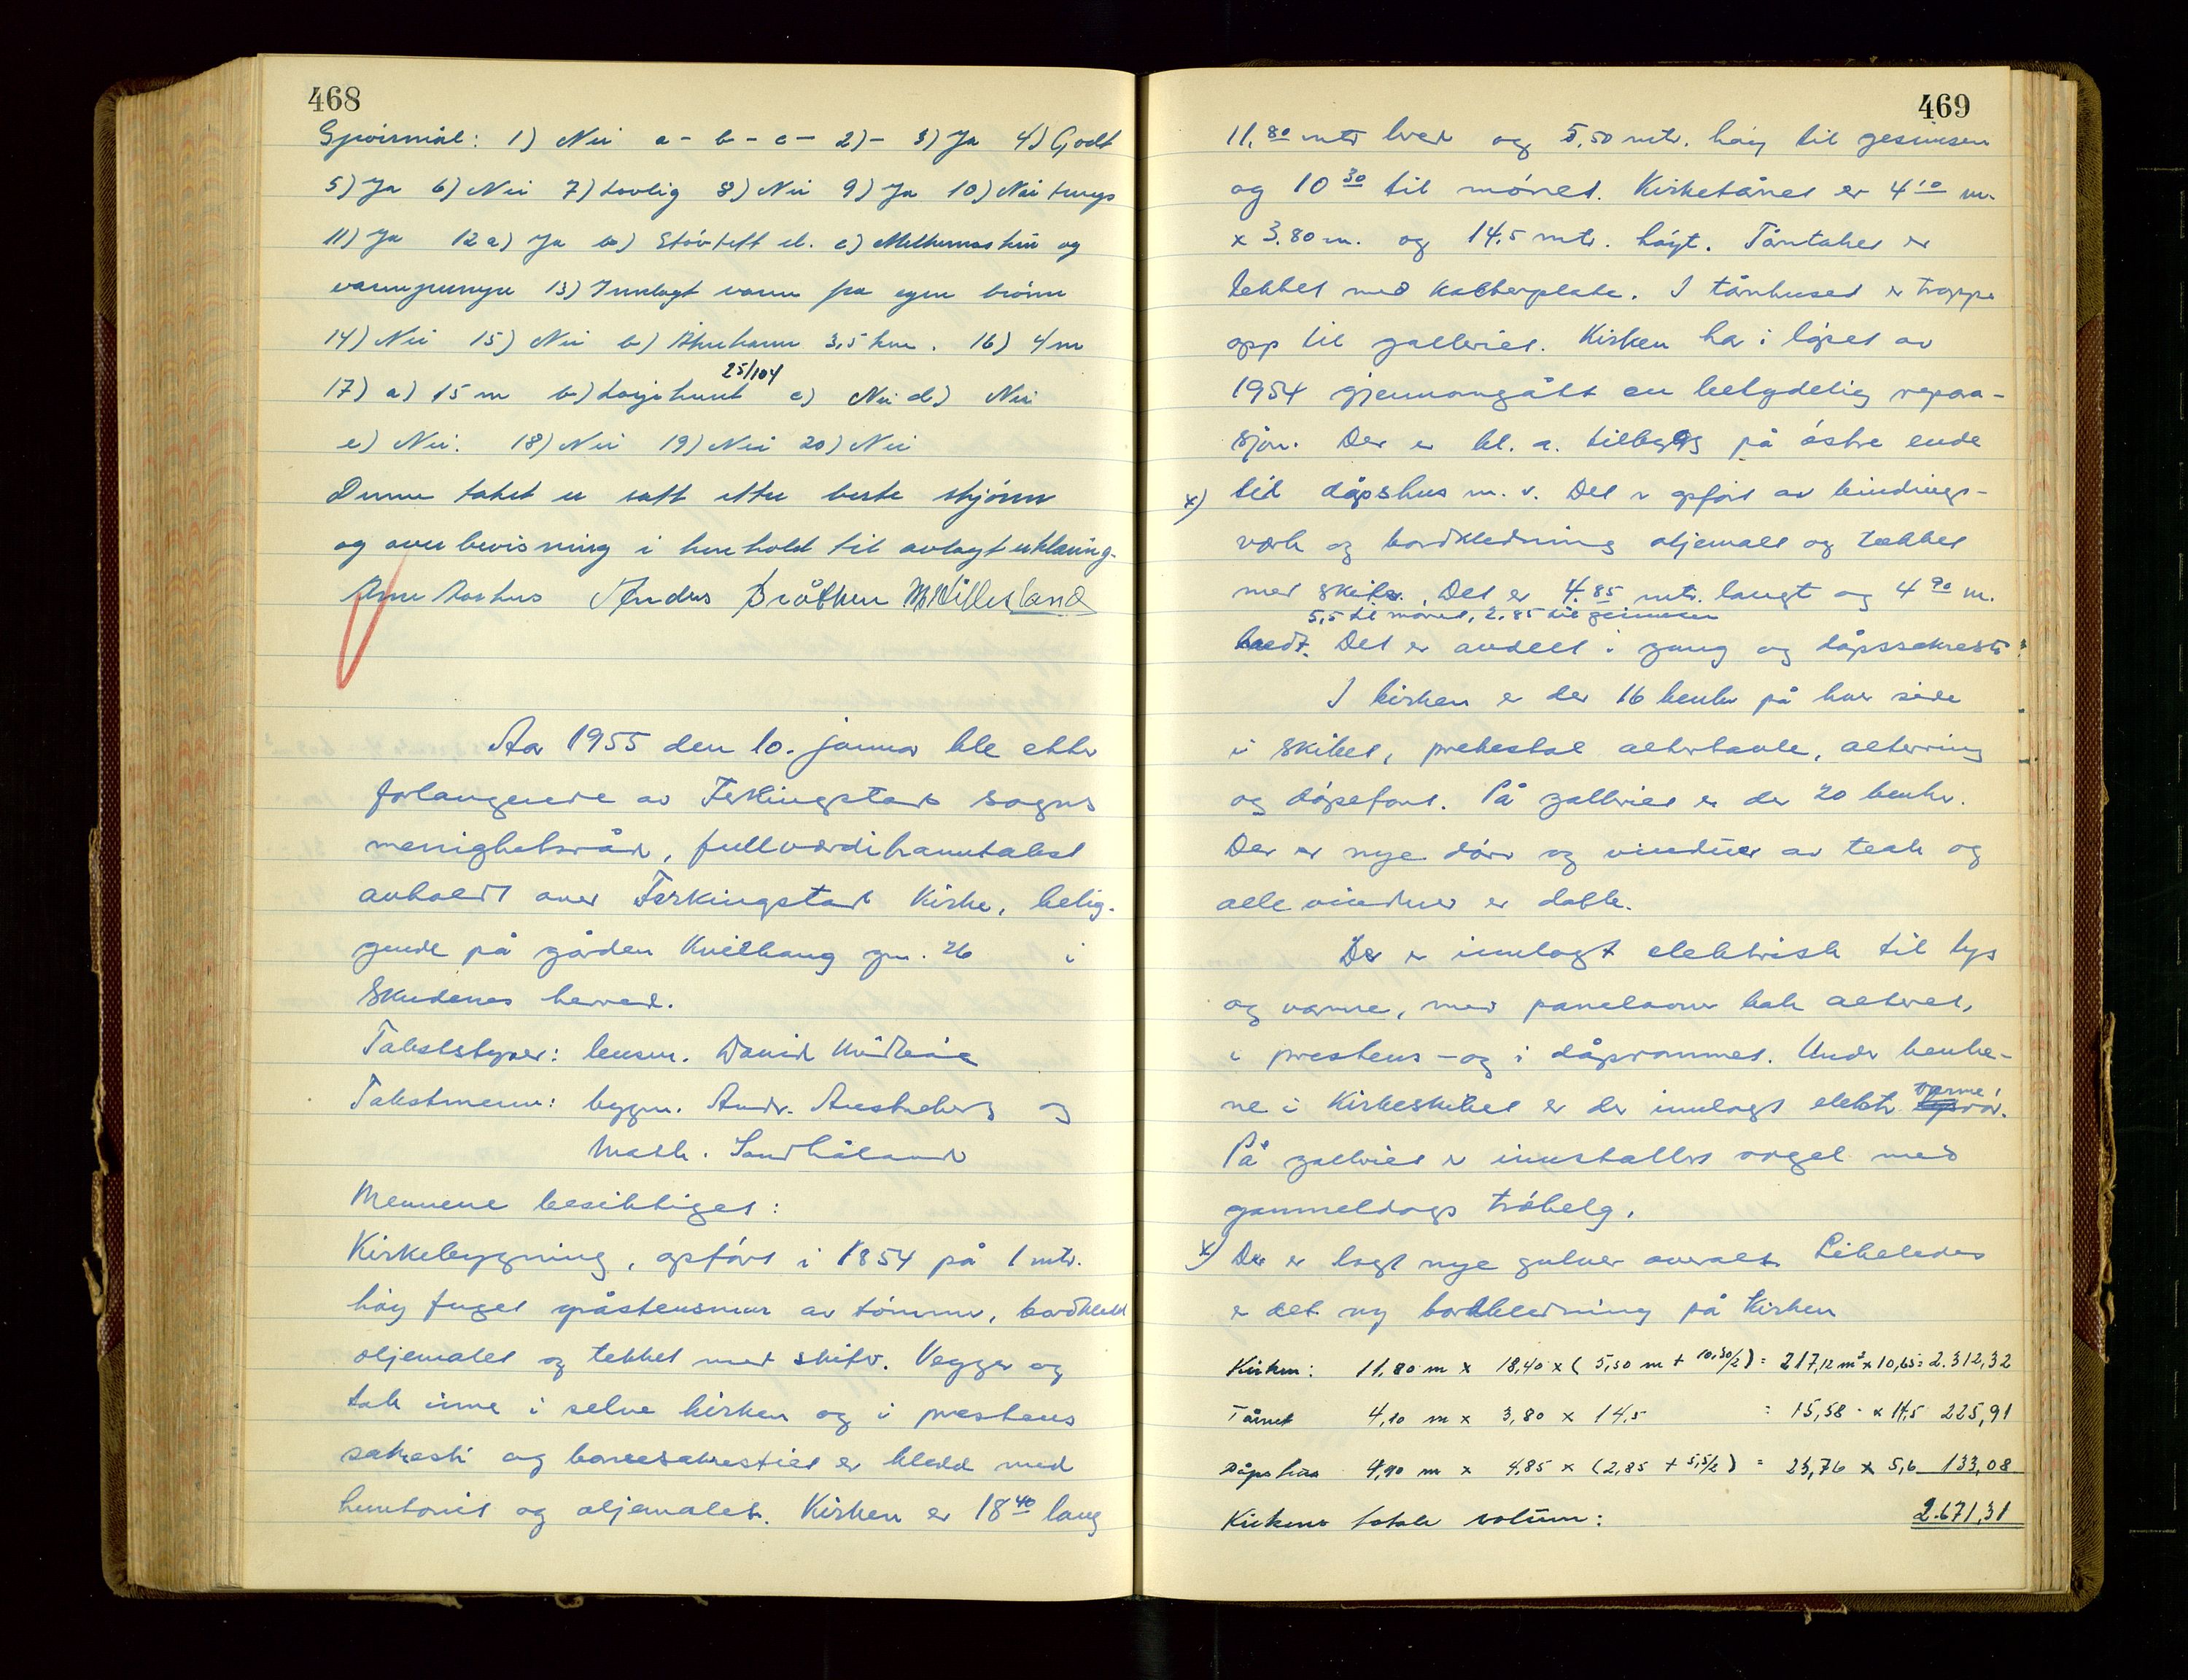 468
Spørsmål: 1) Nei a - b - c - 2) - 3) Ja 4) Godt
5) Ja 6) Nei 7) Lovlig 8) Nei 9) Ja 10) Nei
11) Ja 12 a) Ja b) Støvtett el. c) Melkemaskin og
vannpumpe 13) Innlagt vann fra egen brønn
14) Nei 15) Nei b) Åkrehavn 3,5 km. 16) 4 m
25/104
17) a) 15 m b) c) Nei d) Nei
e) Nei. 18) Nei 19) Nei 20) Nei
Denne takst er satt etter beste skjønn
og overbevisning i henhold til avlagt erklæring.
Arne Aarhus Anders Bråtken
Aar 1955 den 10. januar ble etter
forlangende av Ferkingstad sogns
menighetsråd, fullverdibranntakst
avholdt over Ferkingstad Kirke, belig-
gende på gården Kvilhaug gn. 26 i
Skudenes herred.
Takstbestyrer: lensm. David
Takstmenn: bygm. Andr. og
Math. Sandhåland
Mennene besiktiget:
Kirkebygning, opført i 1854 på 1 mtr.
høy fuget gråstensmur av tømmer, bordkledt
oljemalet og tekket med skifer. Vegger og
tak inne i selve kirken og i prestens
sakresti og barnesakrestiet er kledd med
huntonit og oljemalet. Kirken er 18 40 lang
469
11,80 mtr bred og 5,50 mtr. høy til gesimsen
og 10 30 til mønet. Kirketårnet er 4 10 m.
x 3.80 m. og 14,5 mtr. høyt. Tårntaket er
tekket med kobberplate. I tårnhuset er trappe
opp til galleriet. Kirken har i løpet av
1954 gjennomgått en betydelig repara-
sjon. Der er bl. a. tilbygg på østre ende
x) til dåpshus m. v. Det er opført av bindings-
verk og bordkledning oljemalt og tekket
med skifer. Det er 4.85 mtr. langt og 4 90 m.
5,5 til mønet, 2.85 til gesimsen
bredt. Det er avdelt i gang og dåpssakresti
I kirken er der 16 benker på hver side
i skibet, prekestol altertavle, alterring
og døpefont. På galleriet er der 20 benker.
Der er nye dører og vinduer av teak og
alle vinduer er doble.
Der er innlagt elektrisk til lys
og varme, med panelovner bak alteret,
i prestens - og i dåprommet. Under benke-
ne i Kirkeskibet er der innlagt elektr. varmerør.
På galleriet er installert orgel med
gammeldags tråbelg.
x) Der er lagt nye gulver overalt. Likeledes
er det ny bordkledning på Kirken
Kirken: 11,80 m x 18,40 x (5,50 m + 10,30/2) = 217,12 m² x 10,65 = 2.312,32
Tårnet 4,10 m x 3,80 x 14,5 = 15,58 · x 14,5 225,91
Dåpshus 4,90 m x 4,85 x (2,85 + 5,5/2) = 23,76 x 5,6 133,08
Kirkens totale volum: 2.671,31